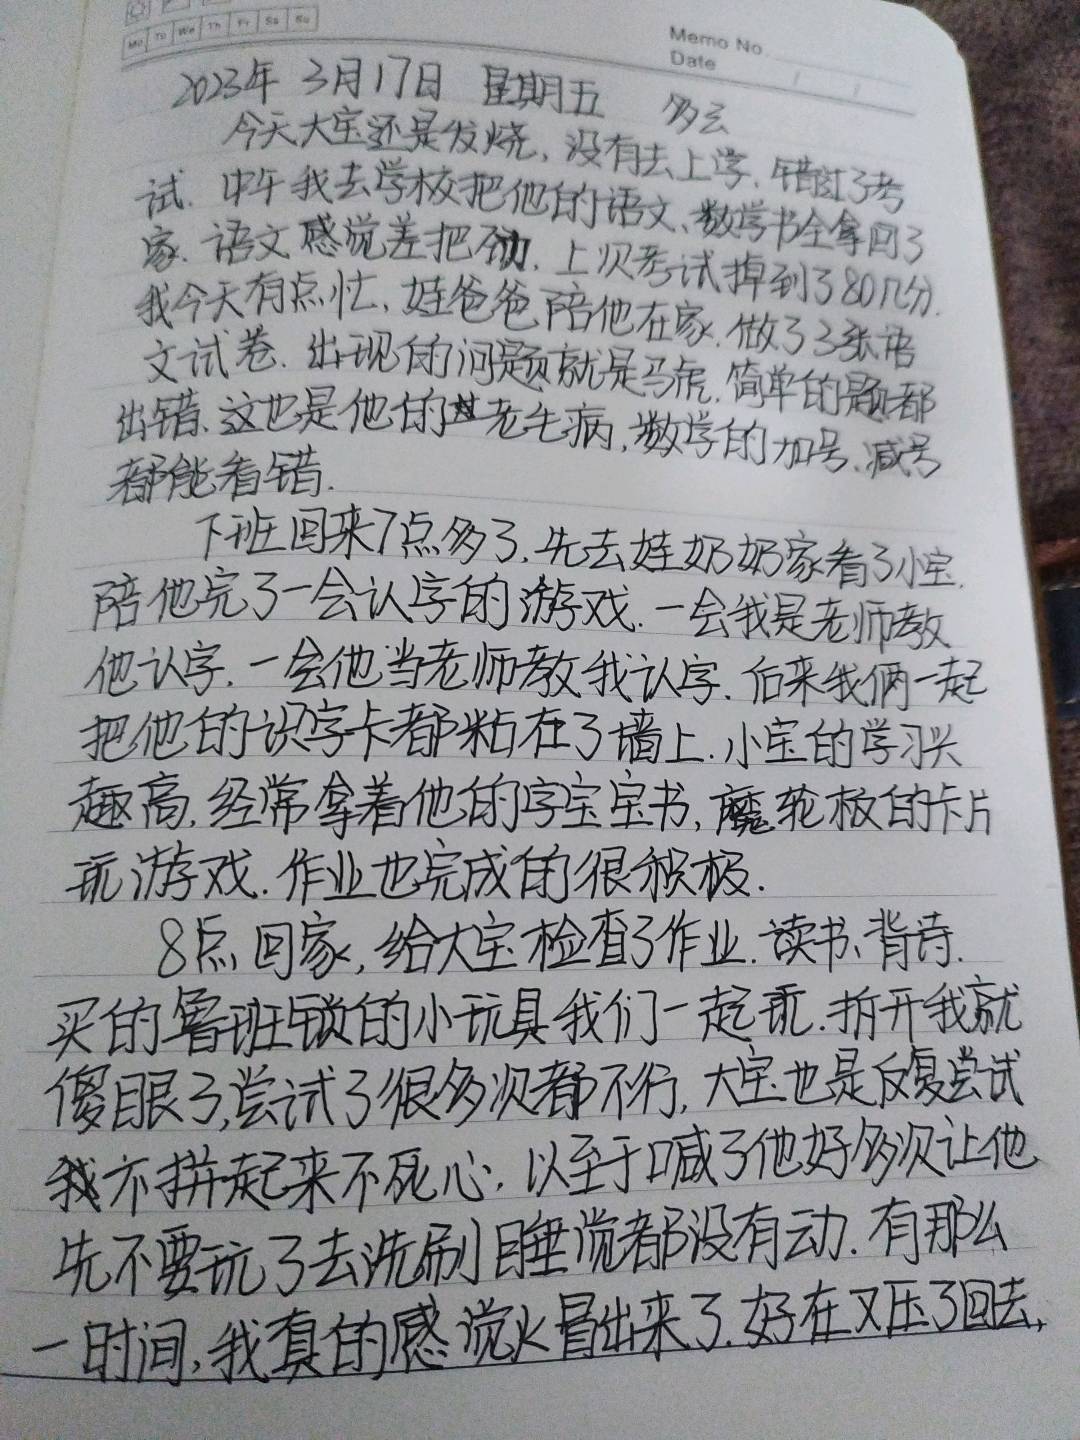 Mo Tu We Th Fr Sa Su
Memo No.
Date
2023年 3月17日 星期五 多云
今天大宝还是发烧、没有去上学、错过了考
试. 中午我去学校把他的语文、数学书全拿回了
家. 语文感觉差把劲. 上次考试掉到了80几分.
我今天有点忙, 娃爸爸陪他在家. 做了3张语
文试卷. 出现的问题就是马虎. 简单的题都
出错、这也是他的老毛病, 数学的加号、减号
都能看错.
下班回来7点多了. 先去娃奶奶家看了小宝.
陪他完了一会认字的游戏. 一会我是老师教
他认字. 一会他当老师教我认字. 后来我俩一起
把他的识字卡都粘在了墙上. 小宝的学习兴
趣高, 经常拿着他的字宝宝书, 魔轮板的卡片
玩游戏. 作业也完成的很积极.
8点回家, 给大宝检查了作业. 读书、背诗.
买的鲁班锁的小玩具我们一起玩. 拆开我就
傻眼了, 尝试了很多次都不行, 大宝也是反复尝试
我不拼起来不死心, 以至于喊了他好多次让他
先不要玩了去洗刷睡觉都没有动. 有那么
一时间, 我真的感觉火冒出来了. 好在又压了回去,